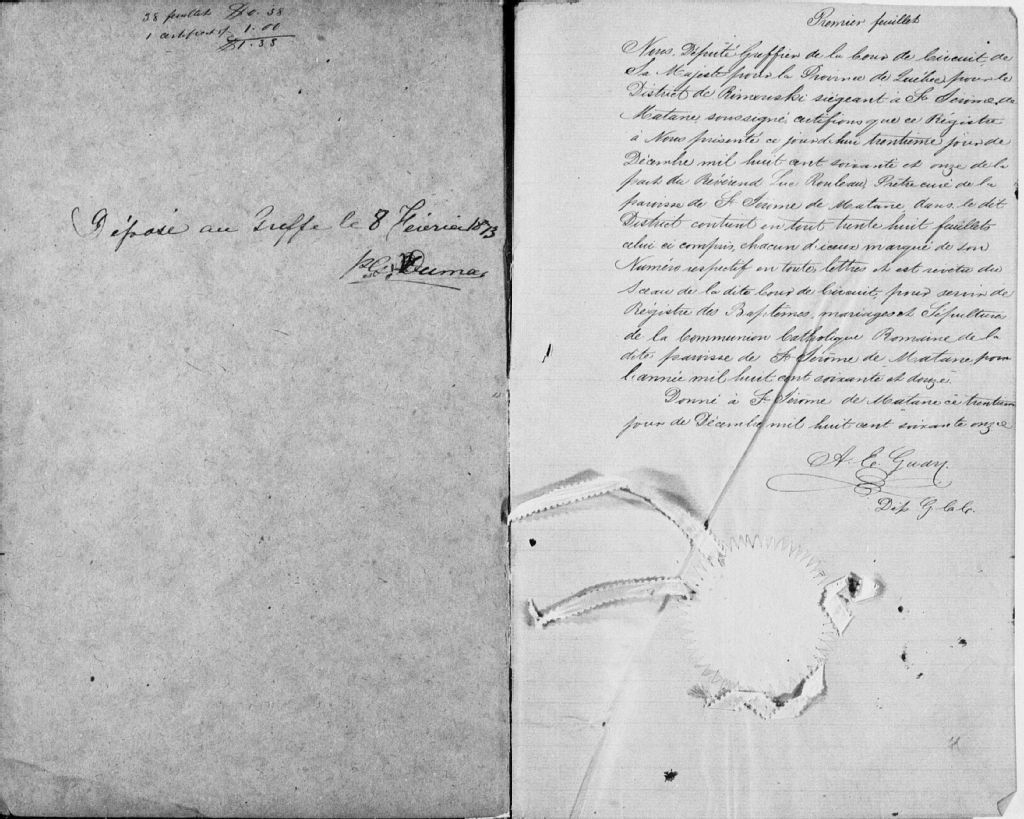 38 feuillets $0.38
1 certificat 1.00
$1.38
Déposé au Greffe le 8 Février 1873
Premier feuillet
Nous, Député Greffier de la Cour de Circuit de
Sa Majesté pour la Province de Québec, pour le
District de Rimouski siégeant à St Jérome de
Matane, soussigné, certifions que ce Régistre
à Nous présenté ce jourd'hui trentieme jour de
Décembre mil huit cent soixante et onze de la
part du Révérend Luc Rouleau, Prêtre curé de la
paroisse de St Jérome de Matane dans le dit
District contient en tout trente huit feuillets
celui ci compris, chacun d'iceux marqué de son
Numéro respectif en toutes lettres et est revetu du
Sceau de la dite Cour de Circuit, pour servir de
Régistre des Baptêmes, mariages et Sépultures
de la Communion Catholique Romaine de la
dite paroisse de St Jérôme de Matane pour
l'année mil huit cent soixante et douze.
Donné à St Jérome de Matane ce trentieme
jour de Décembre mil huit cent soixante onze
A. E.
Dép G. C. C.